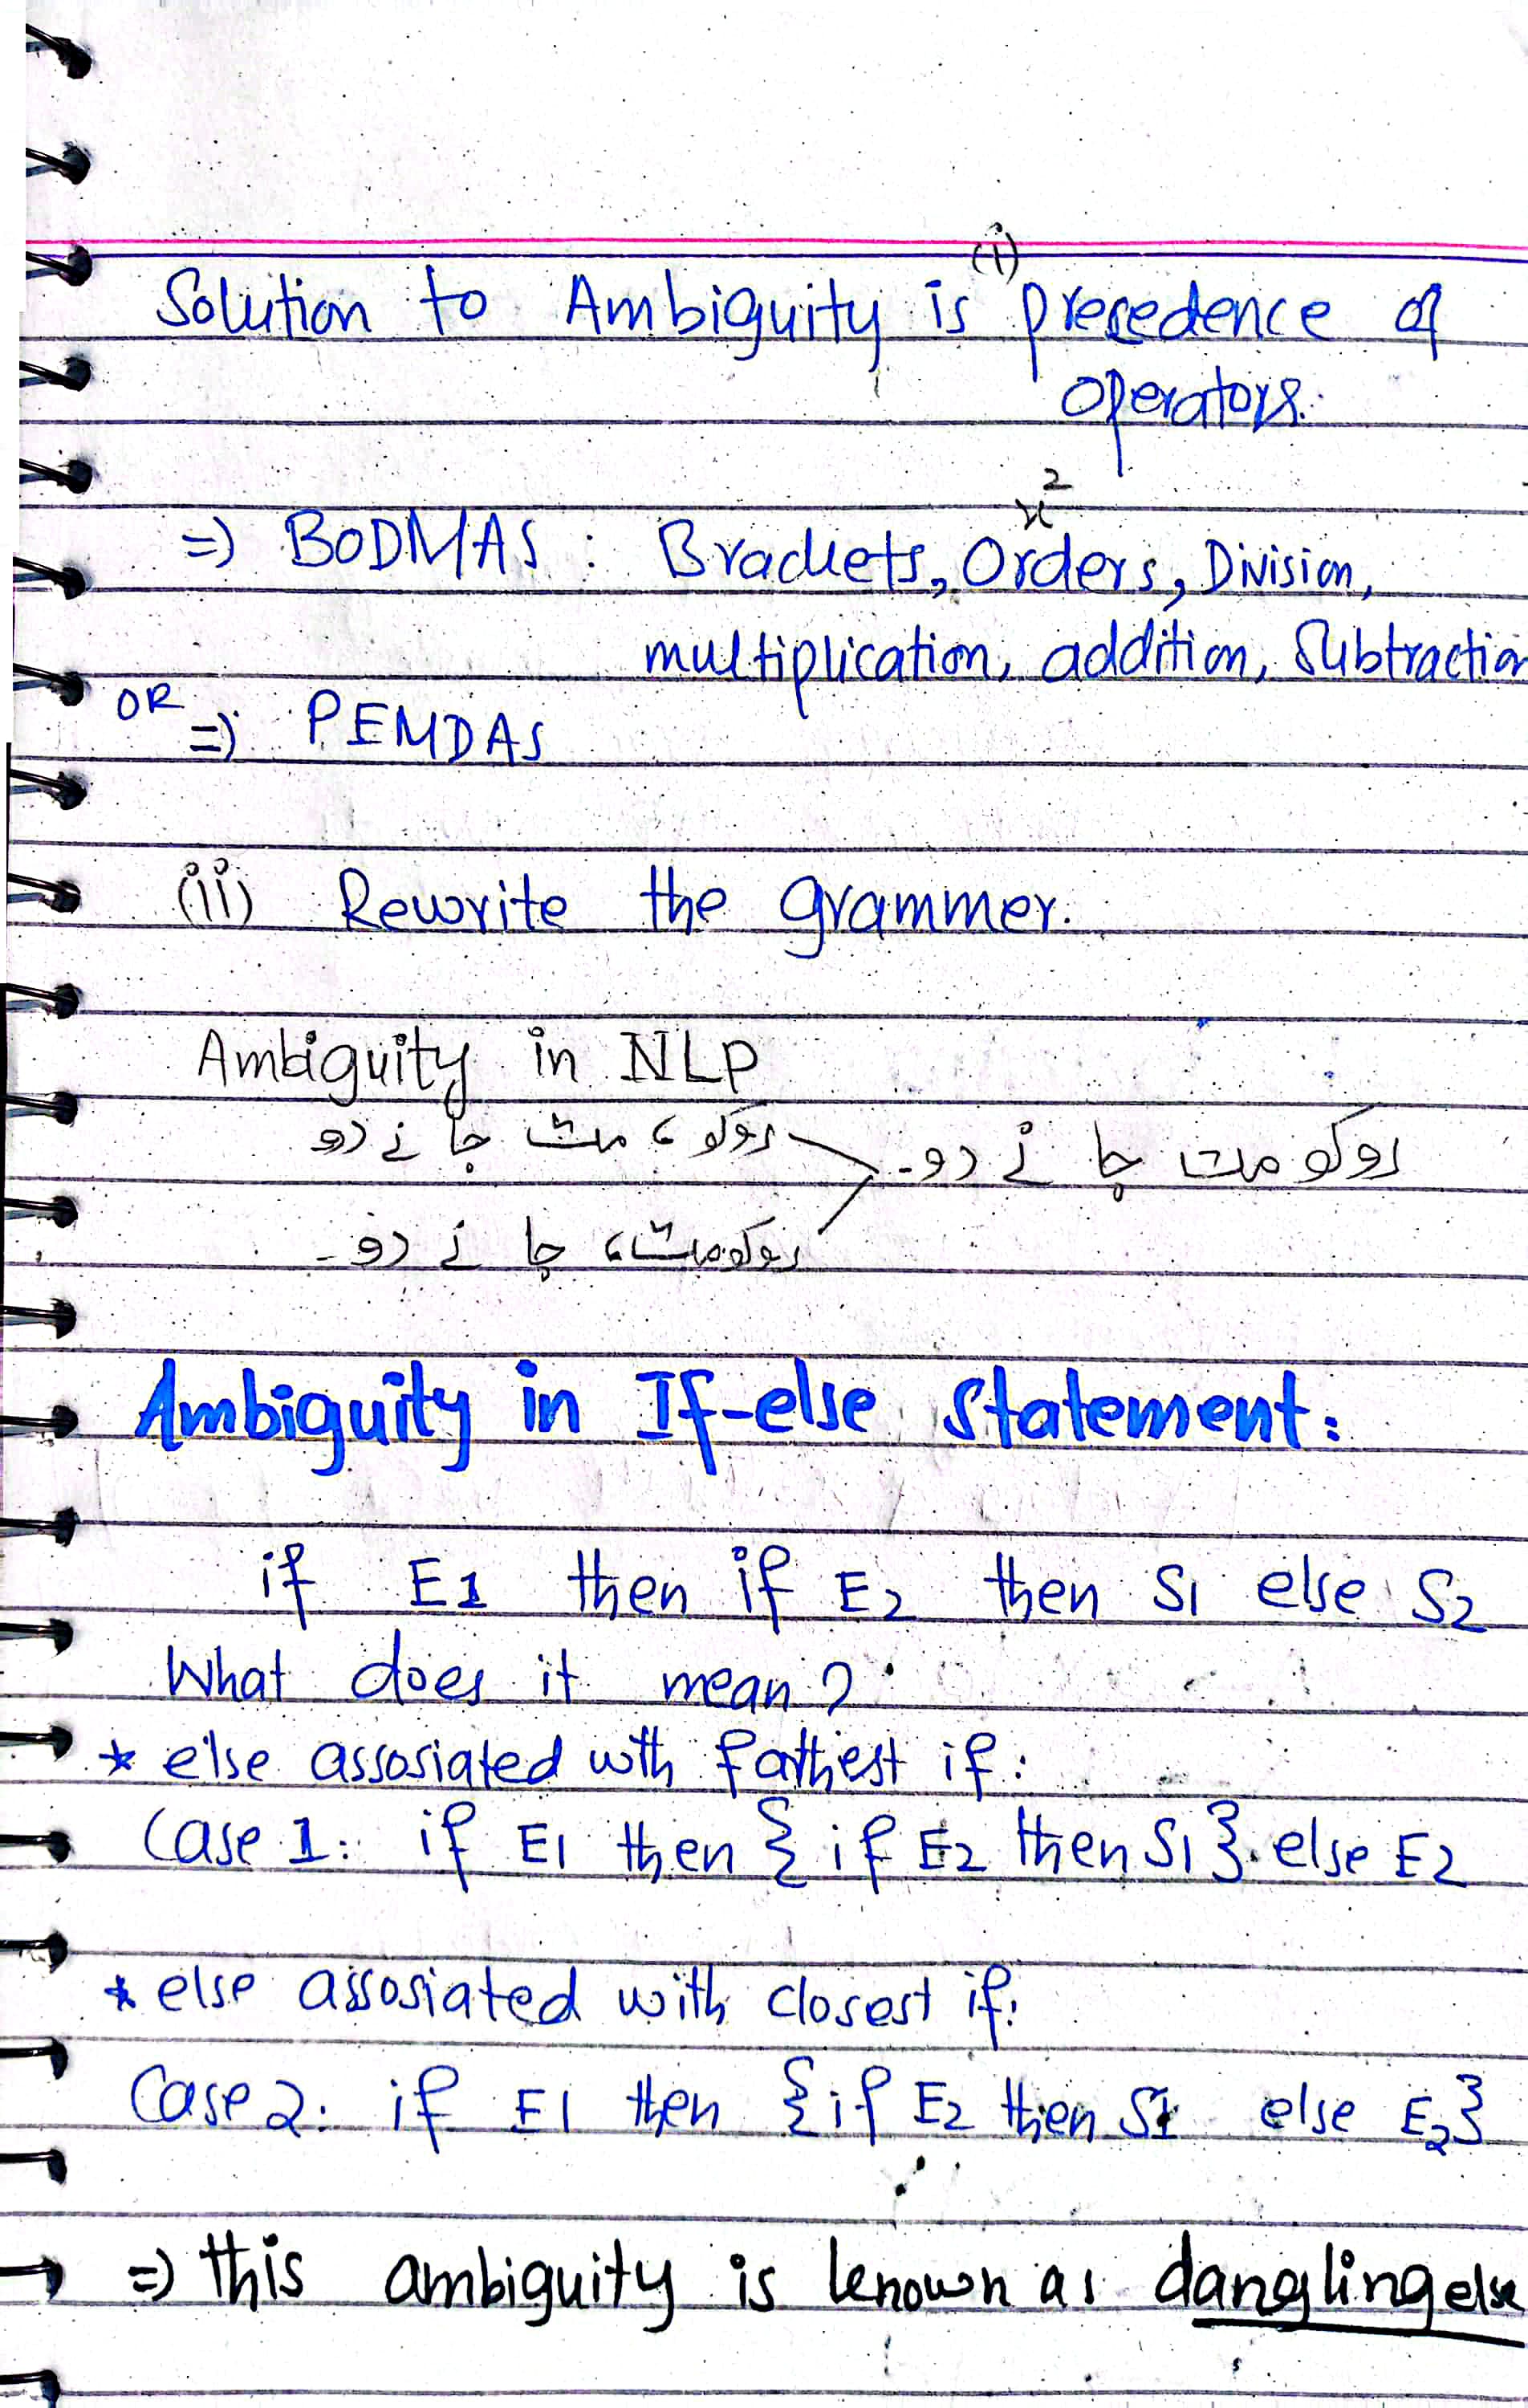 (i)
Solution to Ambiguity is precedence of
operators.
x²
=> BODMAS : Brackets, Orders, Division,
multiplication, addition, Subtraction
OR => PEMDAS
(ii) Rewrite the grammer.
Ambiguity in NLP
روکو مت جانے دو۔
روکو، مت جانے دو
روکو مت، جانے دو۔
Ambiguity in If-else Statement:
if E1 then if E2 then S1 else S2
What does it mean?
* else assosiated wth farthest if:
Case 1: if E1 then { if E2 then S1 } else E2
* else assosiated with closest if:
Case 2: if E1 then { if E2 then S1 else E2 }
=> this ambiguity is known as dangling else